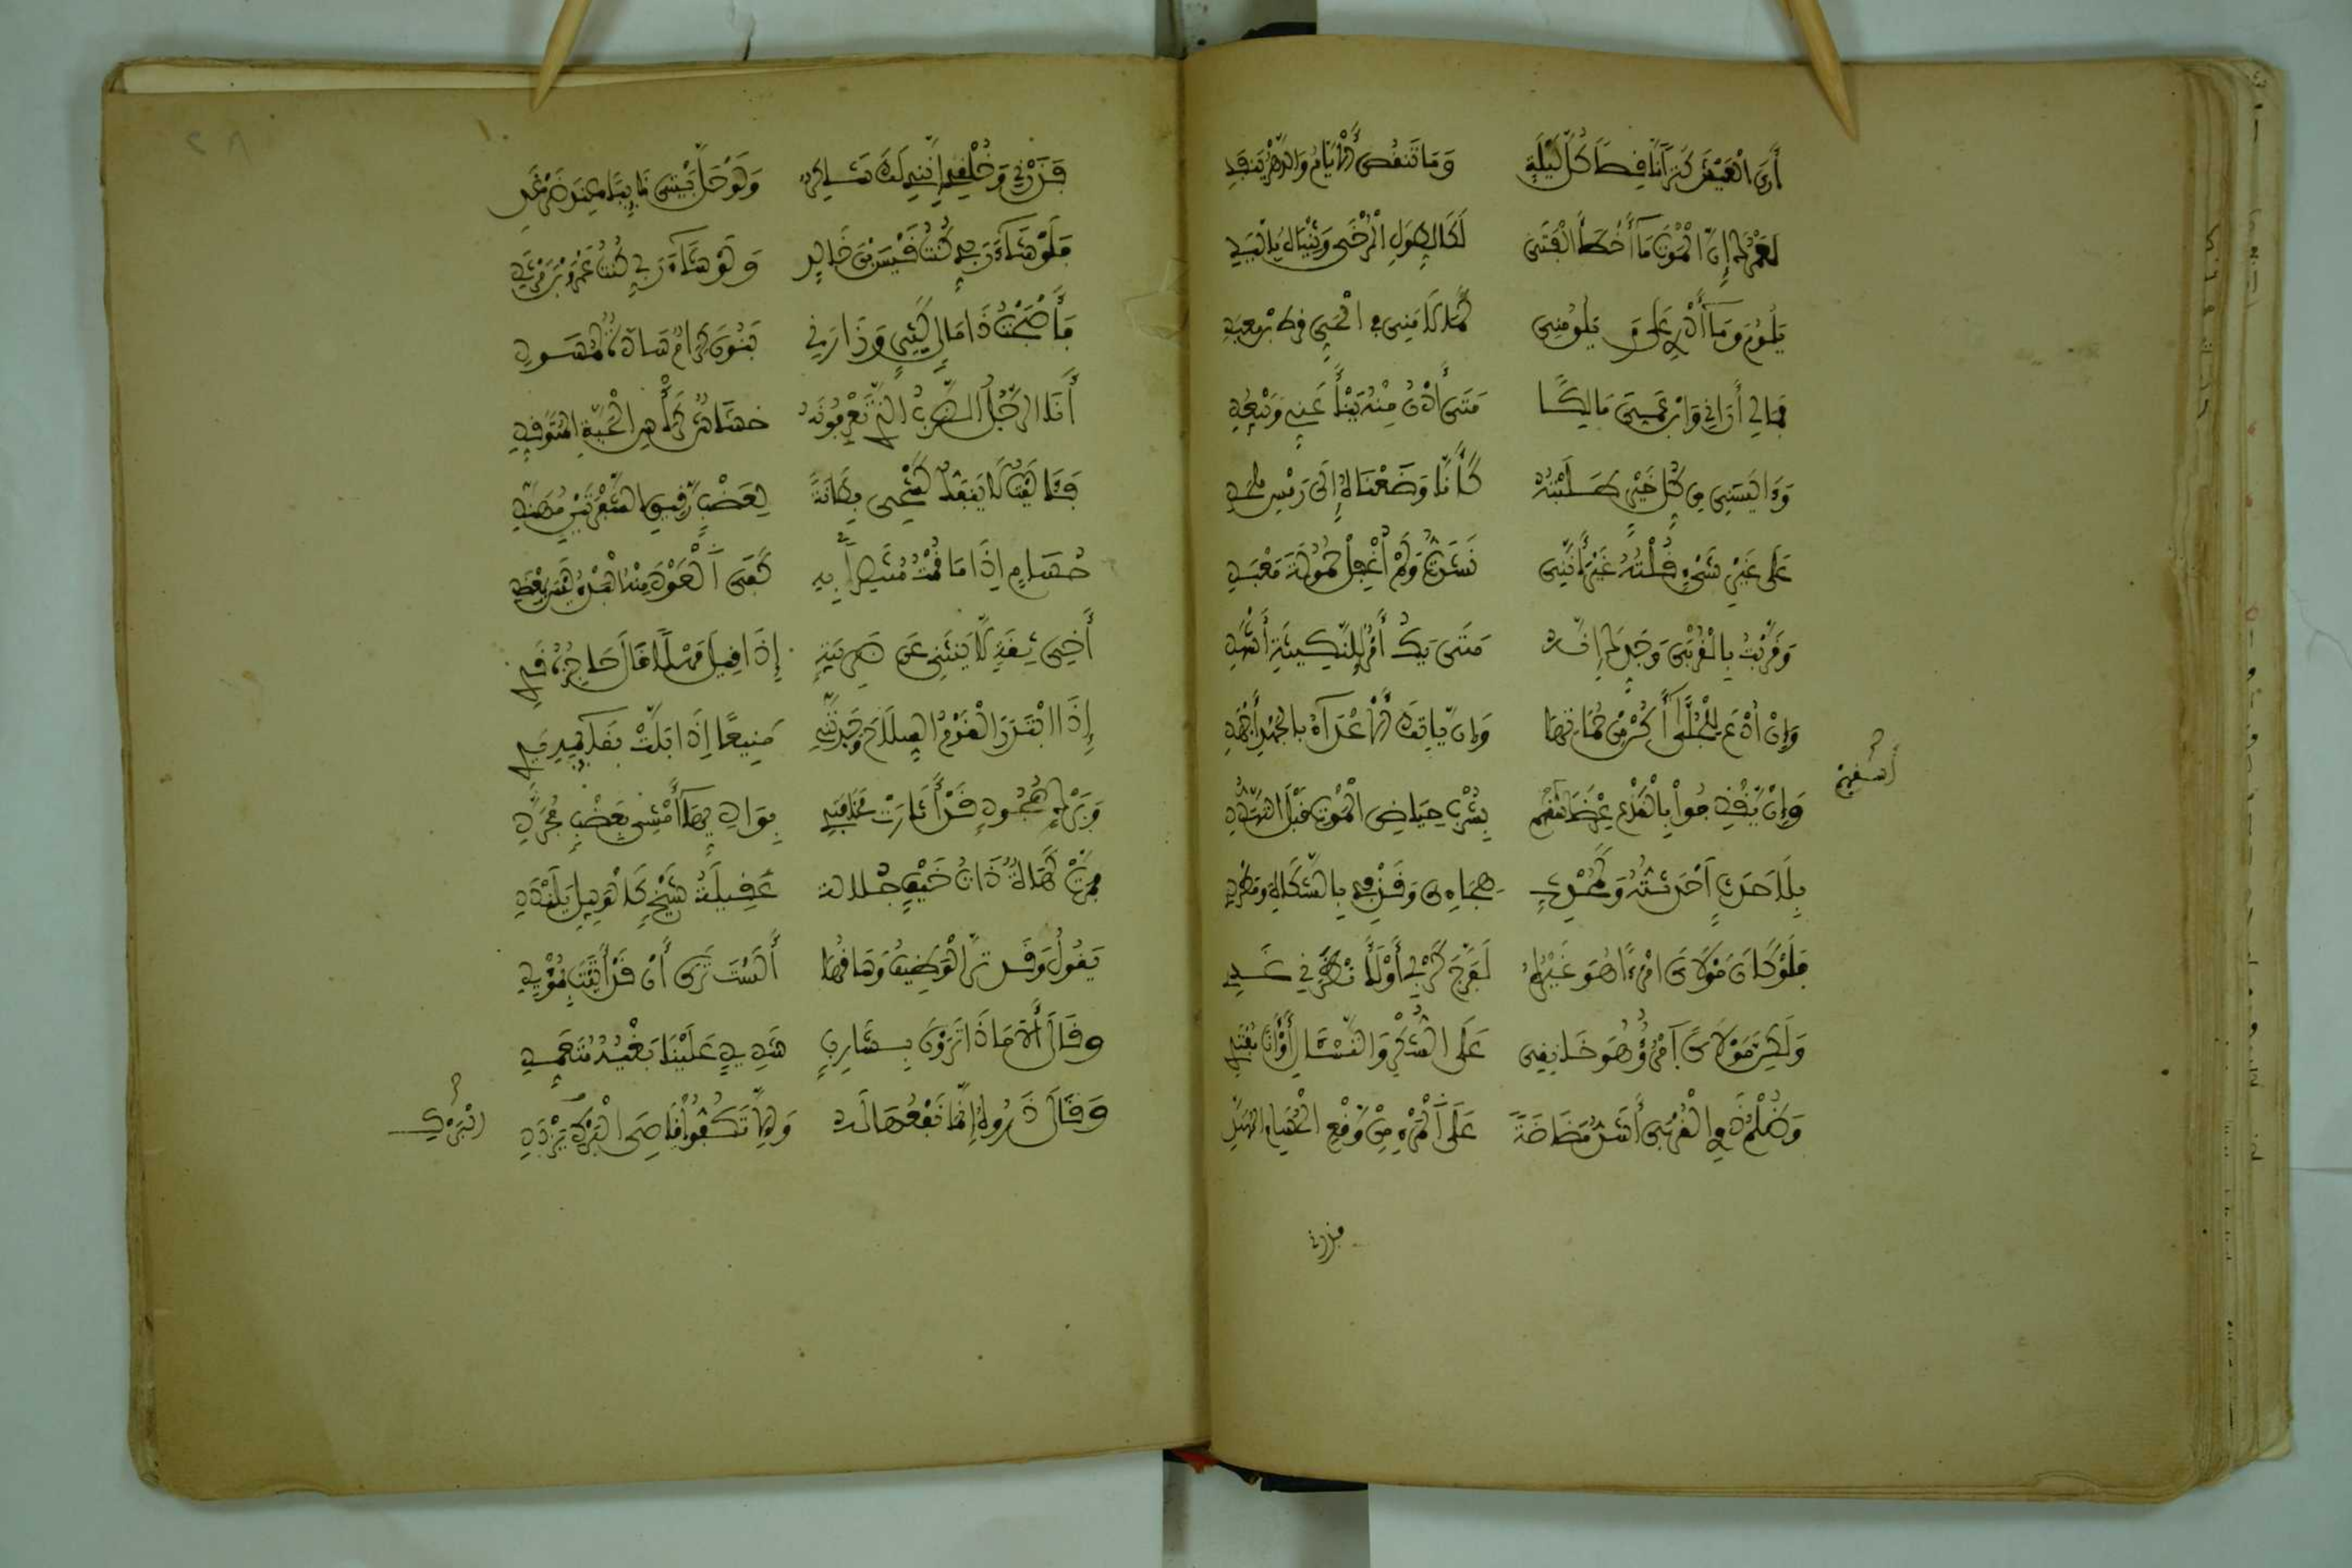 أَرَى الْعَيْشَ كَنْزًا نَاقِصًا كُلَّ لَيْلَةٍ وَمَا تَنقُصِ الْأَيَّامُ وَالدَّهْرُ يَنفَدِ
لَعَمْرُكَ إِنَّ الْمَوْتَ مَا أَخْطَأَ الْفَتَى لَكَالطِّوَلِ الْمُرْخَى وَثِنْيَاهُ بِالْيَدِ
يَلُومُ وَمَا أَدْرِي عَلَى مَ يَلُومُنِي كَمَا لَامَنِي فِي الْحَيِّ قُرْطُ بْنُ مَعْبَدِ
فَمَا لِي أَرَانِي وَابْنَ عَمِّيَ مَالِكًا مَتَى أَدْنُ مِنْهُ يَنْأَ عَنِّي وَيَبْعُدِ
وَأَيْأَسَنِي مِن كُلِّ خَيْرٍ طَلَبْتُهُ كَأَنَّا وَضَعْنَاهُ إِلَى رَمْسِ مُلْحَدِ
عَلَى غَيْرِ شَيْءٍ قُلْتُهُ غَيْرَ أَنَّنِي نَشَدْتُ وَلَمْ أُغْفِلْ حَمُولَةَ مَعْبَدِ
وَقَرَّبْتُ بِالْقُرْبَى وَجَدِّكَ إِنَّهُ مَتَى يَكُ أَمْرٌ لِلنَّكِيثَةِ أَشْهَدِ
وَإِنْ أُدْعَ لِلْجُلَّى أَكُنْ مِنْ حُمَاتِهَا وَإِن يَأْتِكَ الْأَعْدَاءُ بِالْجَهْدِ أَجْهَدِ
وَإِنْ يَقْذِفُوا بِالْقَذْعِ عِرْضَكَ أَسْقِهِمْ بِشُرْبِ حِيَاضِ الْمَوْتِ قَبْلَ التَّهَدُّدِ
بِلَا حَدَثٍ أَحْدَثْتُهُ وَكَمُحْدَثٍ هِجَاءِي وَقَذْفِي بِالشَّكَاةِ وَمُطْرَدِي
فَلَوْ كَانَ مَوْلَايَ امْرَءًا هُوَ غَيْرُهُ لَفَرَّجَ كَرْبِي أَوْ لَأَنْظَرَنِي غَدِي
وَلَكِنَّ مَوْلَايَ امْرُؤٌ هُوَ خَانِقِي عَلَى الشُّكْرِ وَالتَّسْآلِ أَوْ أَنَا مُفْتَدِ
وَظُلْمُ ذَوِي الْقُرْبَى أَشَدُّ مَضَاضَةً عَلَى الْمَرْءِ مِنْ وَقْعِ الْحُسَامِ الْمُهَنَّدِ
فذرني
فَذَرْنِي وَخُلْقِي إِنَّنِي لَكَ شَاكِرٌ وَلَوْ حَلَّ بَيْتِي نَائِيًا عِنْدَ ضَرْغَدِ
فَلَوْ شَاءَ رَبِّي كُنْتُ قَيْسَ بْنَ خَالِدٍ وَلَوْ شَاءَ رَبِّي كُنْتُ عَمْرَو بْنَ مَرْثَدِ
فَأَصْبَحْتُ ذَا مَالٍ كَثِيرٍ وَزَارَنِي بَنُونَ كِرَامٌ سَادَةٌ لِمُسَوَّدِ
أَنَا الرَّجُلُ الضَّرْبُ الَّذِي تَعْرِفُونَهُ خَشَاشٌ كَرَأْسِ الْحَيَّةِ الْمُتَوَقِّدِ
فَآلَيْتُ لَا يَنفَكُّ كَشْحِي بِطَانَةً لِعَضْبٍ رَقِيقِ الشَّفْرَتَيْنِ مُهَنَّدِ
حُسَامٍ إِذَا مَا قُمْتُ مُنْتَصِرًا بِهِ كَفَى الْعَوْدَ مِنْهُ الْبَدْءُ لَيْسَ بِمِعْضَدِ
أَخِي ثِقَةٍ لَا يَنثَنِي عَن ضَرِيبَةٍ إِذَا قِيلَ مَهْلًا قَالَ حَاجِزُهُ قَدِي
إِذَا ابْتَدَرَ الْقَوْمُ السِّلَاحَ وَجَدْتَنِي مَنِيعًا إِذَا بَلَّتْ بِقَائِمِهِ يَدِي
وَبَرْكِ هُجُودٍ قَدْ أَثَارَتْ مَخَافَتِي بِوَادِيهَا أَمْشِي بِعَضْبٍ مُجَرَّدِ
فَمَرَّتْ كَهَاةٌ ذَاتُ خَيْفٍ جُلَالَةٌ عَقِيلَةُ شَيْخٍ كَالْوَبِيلِ يَلَنْدَدِ
يَقُولُ وَقَد تَرَّ الْوَظِيفُ وَسَاقُهَا أَلَسْتَ تَرَى أَنْ قَدْ أَتَيْتَ بِمُؤْيِدِ
وَقَالَ أَلَا مَاذَا تَرَوْنَ بِشَارِبٍ شَدِيدٍ عَلَيْنَا بَغْيُهُ مُتَعَمِّدِ
وَقَالَ ذَرُوهُ إِنَّمَا نَفْعُهَا لَهُ وَإِلَّا تَكُفُّوا قَاصِيَ الْبَرْكِ يَزْدَدِ
البرك